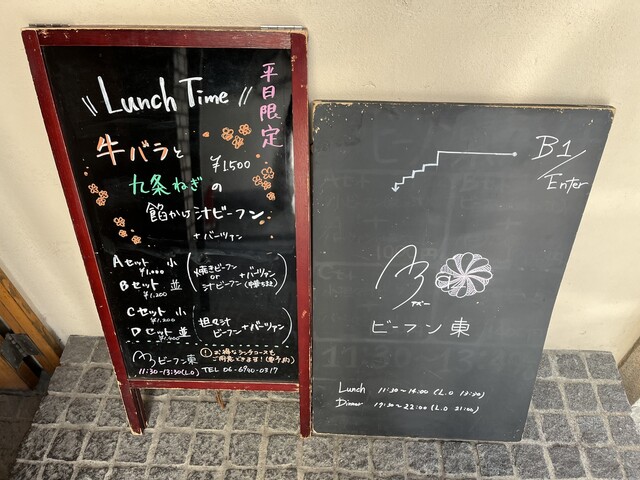 Lunch Time
平日限定
牛バラと
九条ねぎの
¥1,500
餡かけ汁ビーフン
+バーツァン
Aセット 小
¥1,000
Bセット 並
¥1,200
焼きビーフン
or
汁ビーフン
+バーツァン
(中華ちまき)
Cセット 小
¥1,200
Dセット 並
¥1,400
担々汁
ビーフン
+バーツァン
ビーフン東
お得なランチコースも
ご用意できます!(要予約)
11:30-13:30(LO) TEL 06-6940-0317
B1
Enter
アズー
ビーフン東
Lunch 11:30~14:00 (L.O 13:30)
Dinner 17:30~22:00 (L.O 21:00)